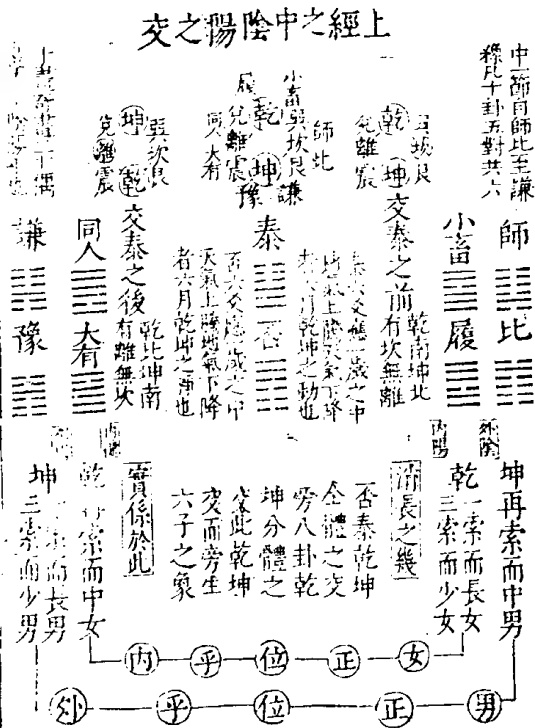 上經之中陰陽之交
中一節自師比至謙
豫凡十卦五對共六
師
比
小畜
履
乾
巽坎艮
兌離震
坤
交泰之前
乾南坤北
有坎無離
師比
小畜巽坎艮謙
乾
坤
履兌離震豫
同人大有
泰
否
泰六交總一歲之中
地氣上騰天氣下降
者六月乾坤之動也
否六交總一歲之中
天氣上騰地氣下降
者六月乾坤之
也
巽坎艮
坤
兌離震
乾
交泰之後
乾北坤南
有離無坎
同人
大有
謙
豫
外陰
內陽
坤再索而中男
乾一索而長女
三索而少女
消長之幾
否泰乾坤
全體之交
旁八卦乾
坤分體之
交此乾坤
交而旁生
六子之象
實係於此
乾再索而中女
坤一索而長男
三索而少男
女正位乎內
男正位乎外